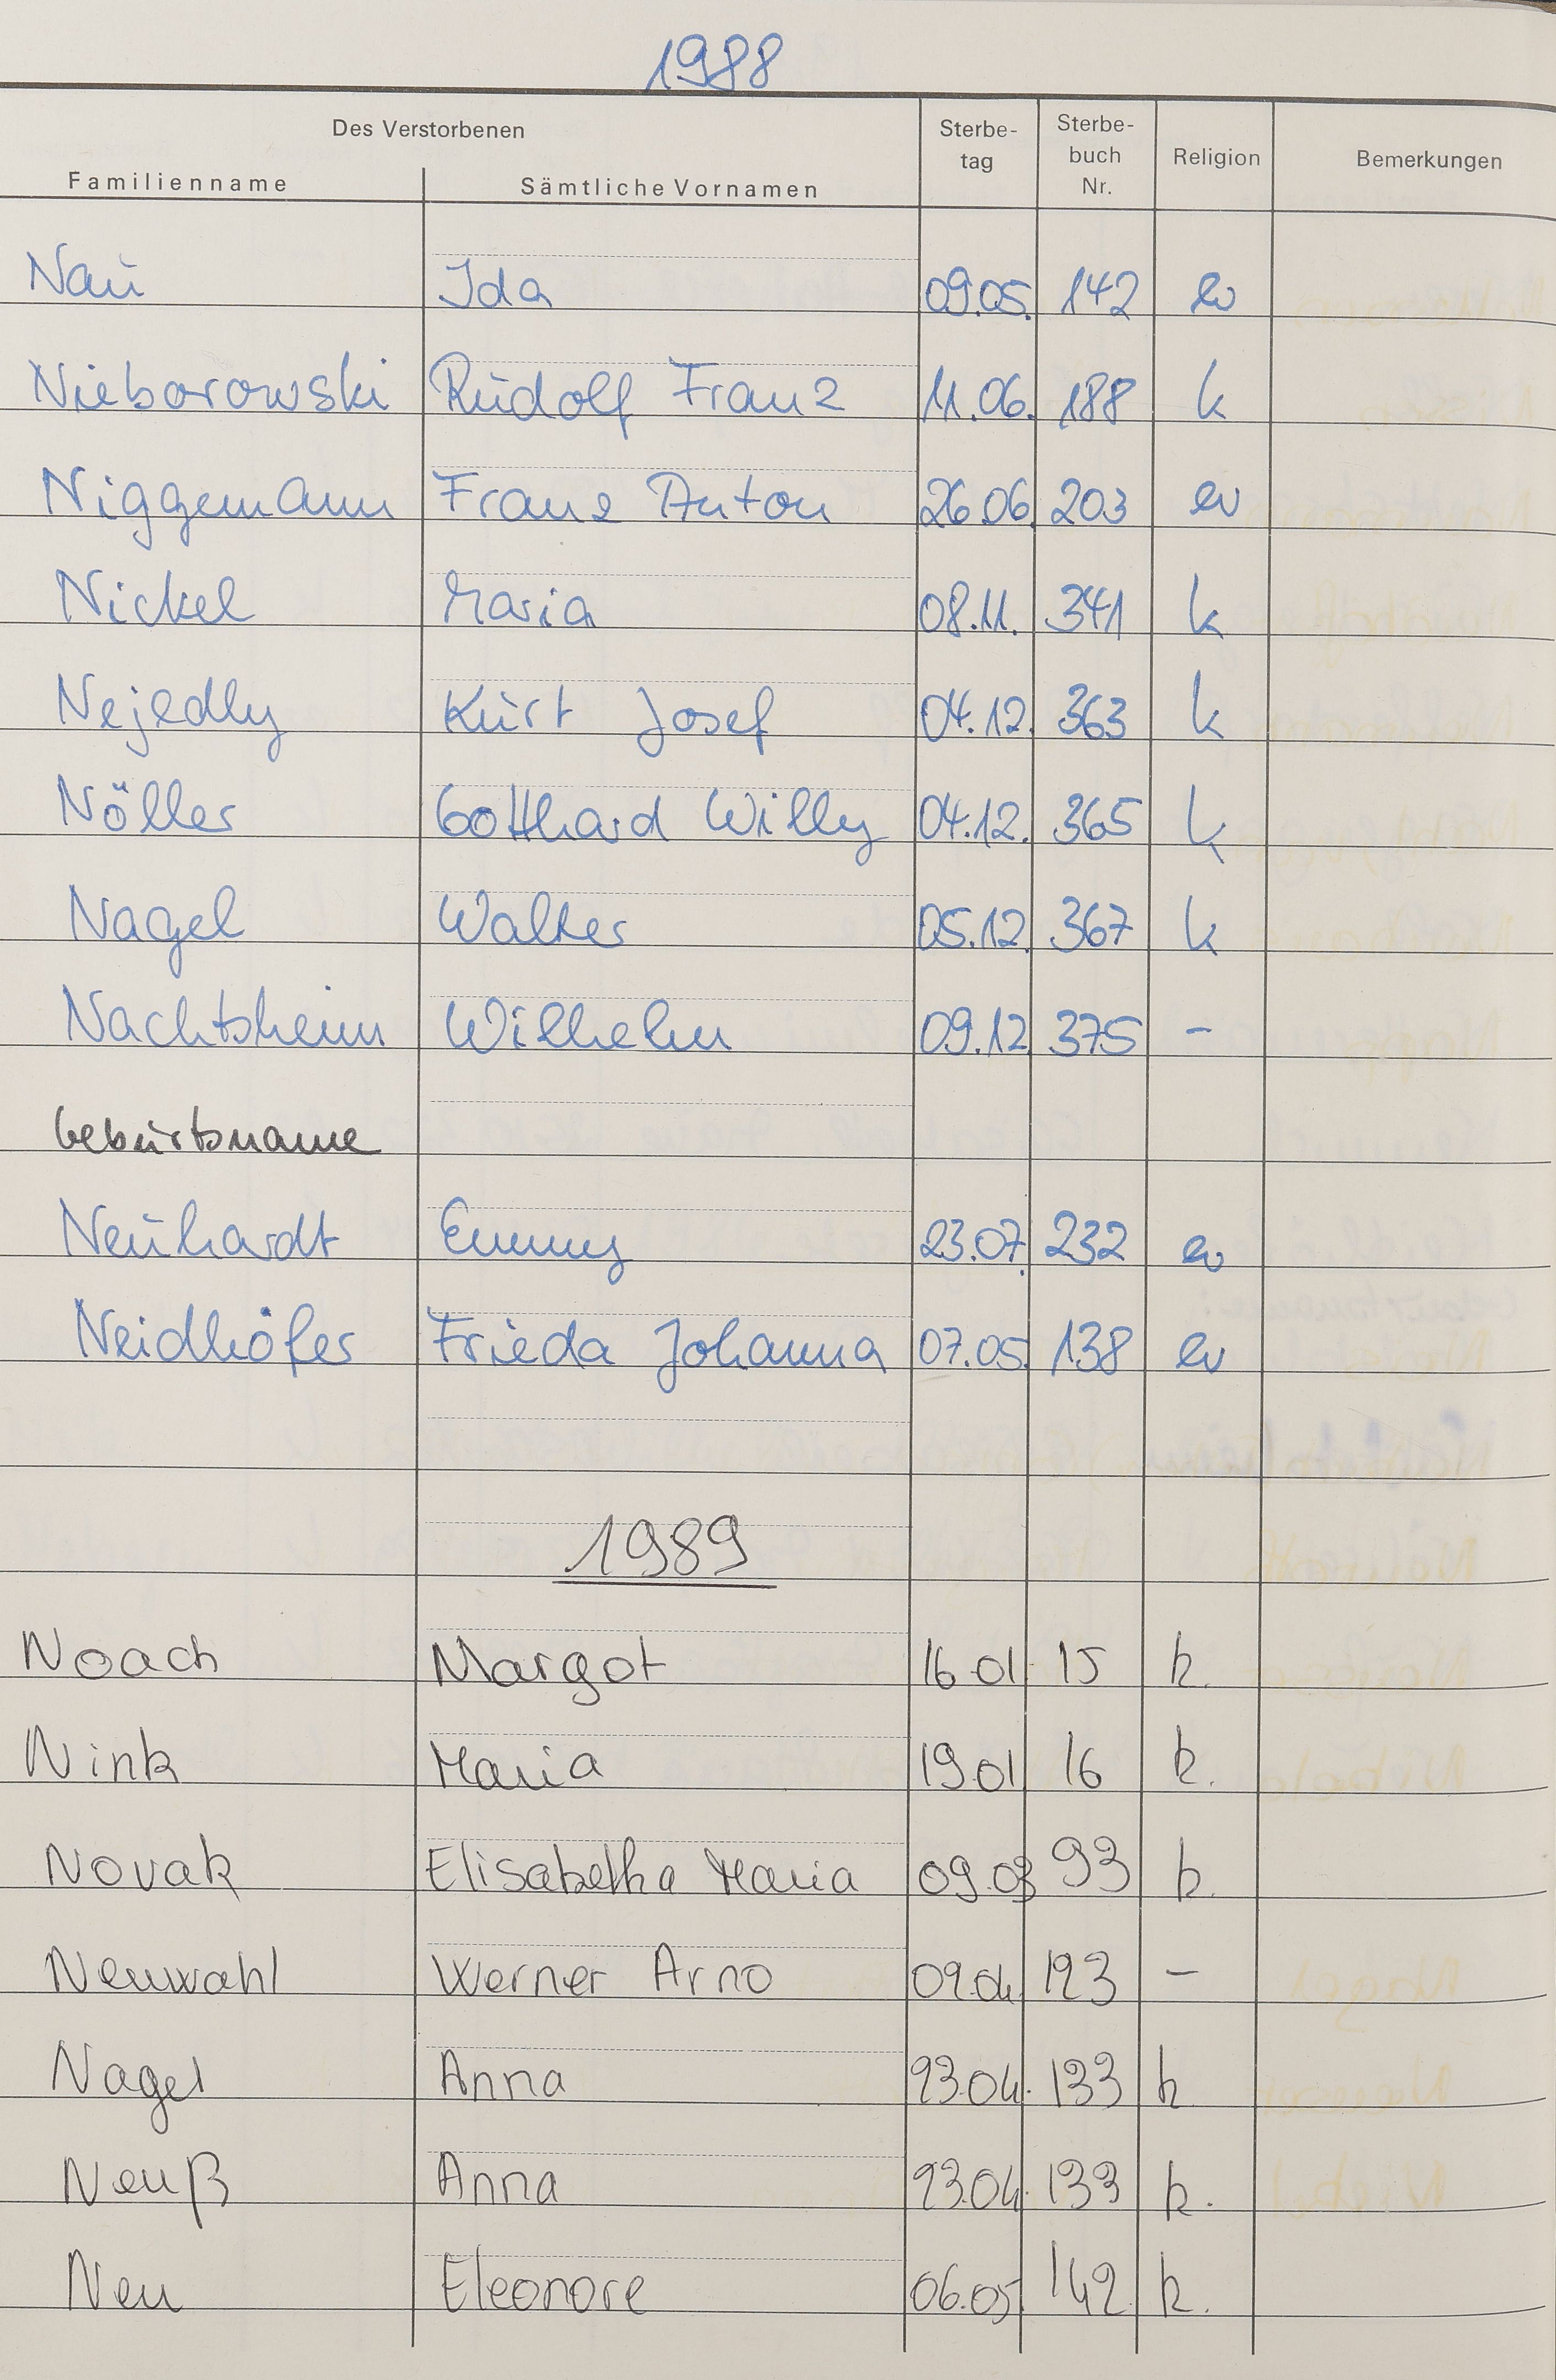 1988
Des Verstorbenen Sterbe- Sterbe- Religion Bemerkungen
Familienname Sämtliche Vornamen tag buch
Nr.
Nau Ida 09.05. 142 ev
Nieborowski Rudolf Franz 11.06. 188 k
Niggemann Franz Anton 26.06. 203 ev
Nickel Maria 08.11. 341 k
Nejedly Kurt Josef 04.12. 363 k
Nöller Gotthard Willy 04.12. 365 k
Nagel Walter 05.12. 367 k
Nachtsheim Wilhelm 09.12. 375 -
Geburtsname
Neuhardt Emmy 23.07. 232 ev
Neidhöfer Frieda Johanna 07.05. 138 ev
1989
Noach Margot 16.01. 15 k.
Nink Maria 19.01 16 k.
Novak Elisabetha Maria 09.03 93 k.
Neuwahl Werner Arno 09.04. 123 -
Nagel Anna 23.04. 133 k
Neuß Anna 23.04. 133 k.
Neu Eleonore 06.05. 142 k.